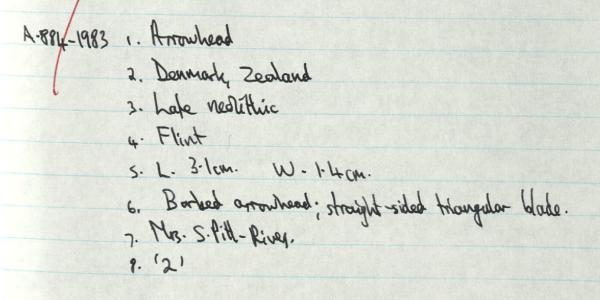 A.884-1983 1. Arrowhead
2. Denmark, Zealand
3. Late neolithic
4. Flint
5. L. 3.1cm. W. 1.4cm.
6. Barbed arrowhead; straight-sided triangular blade.
7. Mrs. S. Pitt-Rivers.
8. '2'